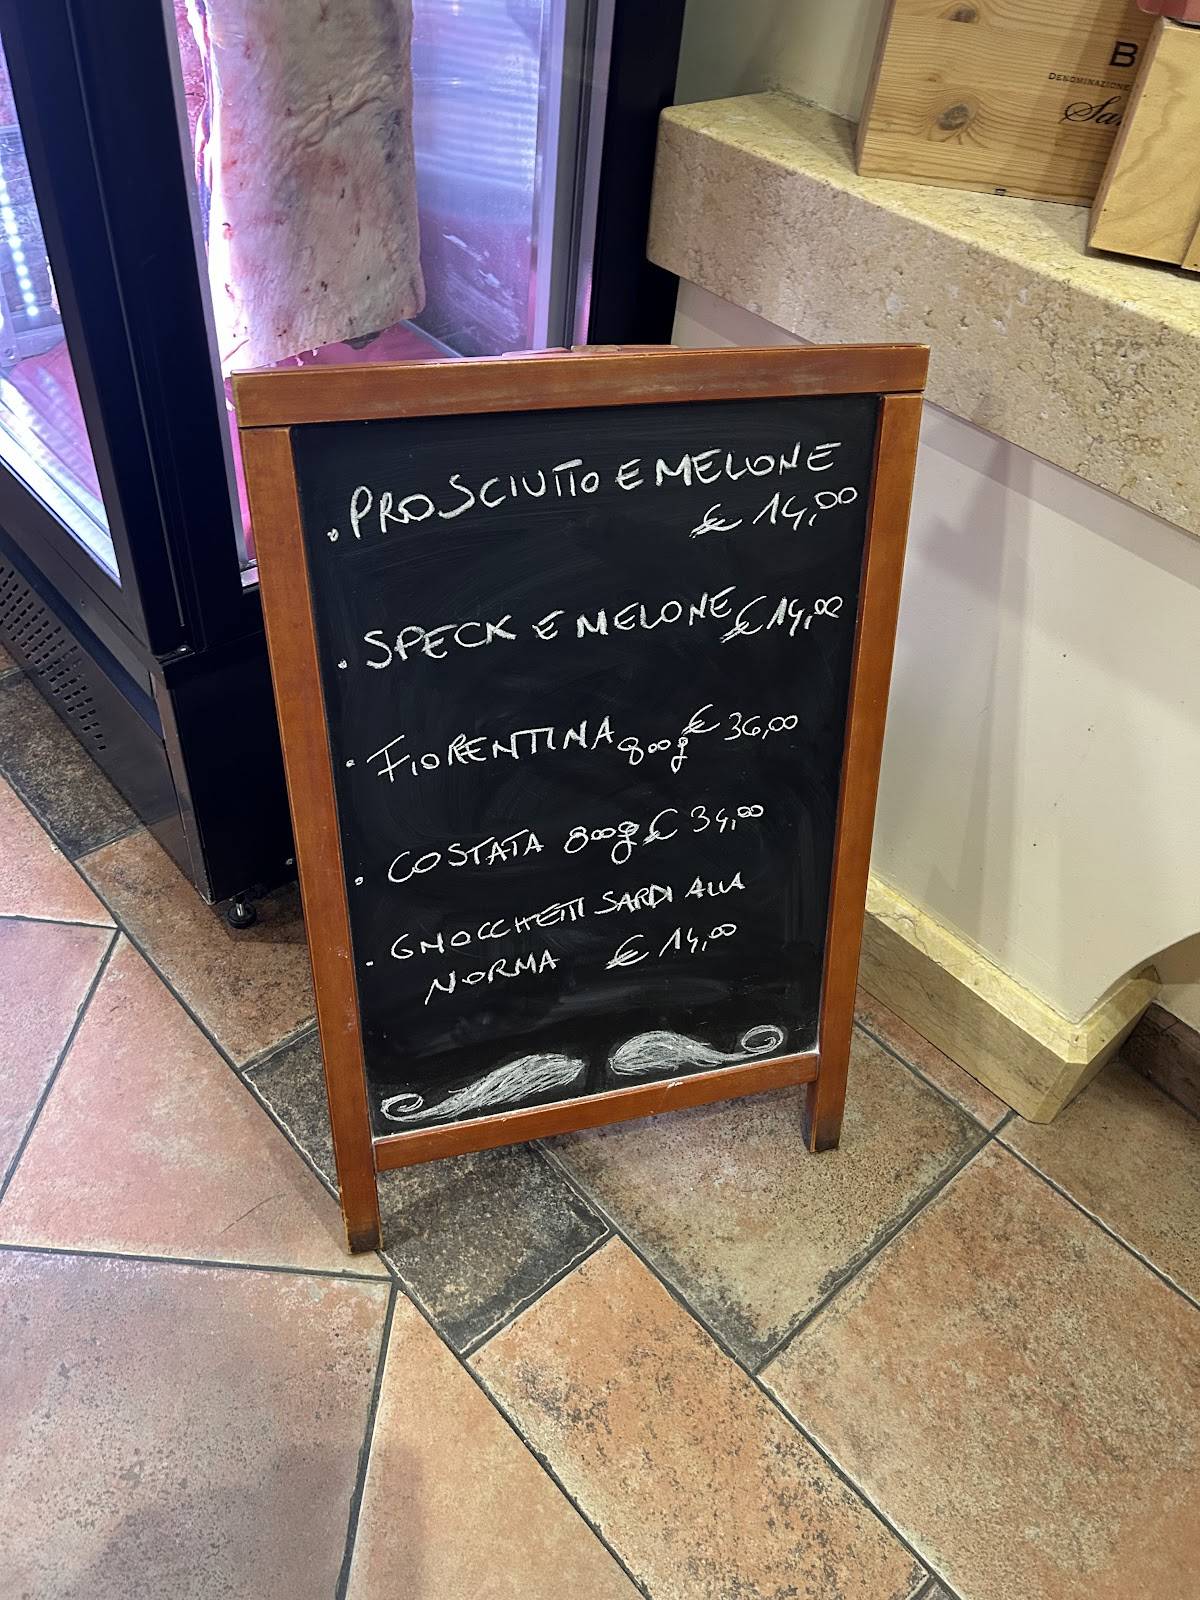 B
DENOMINAZIONE
• PROSCIUTTO E MELONE
€ 14,00
• SPECK E MELONE € 14,00
• FIORENTINA 800g € 36,00
• COSTATA 800g € 34,00
• GNOCCHETTI SARDI ALLA
NORMA € 14,00